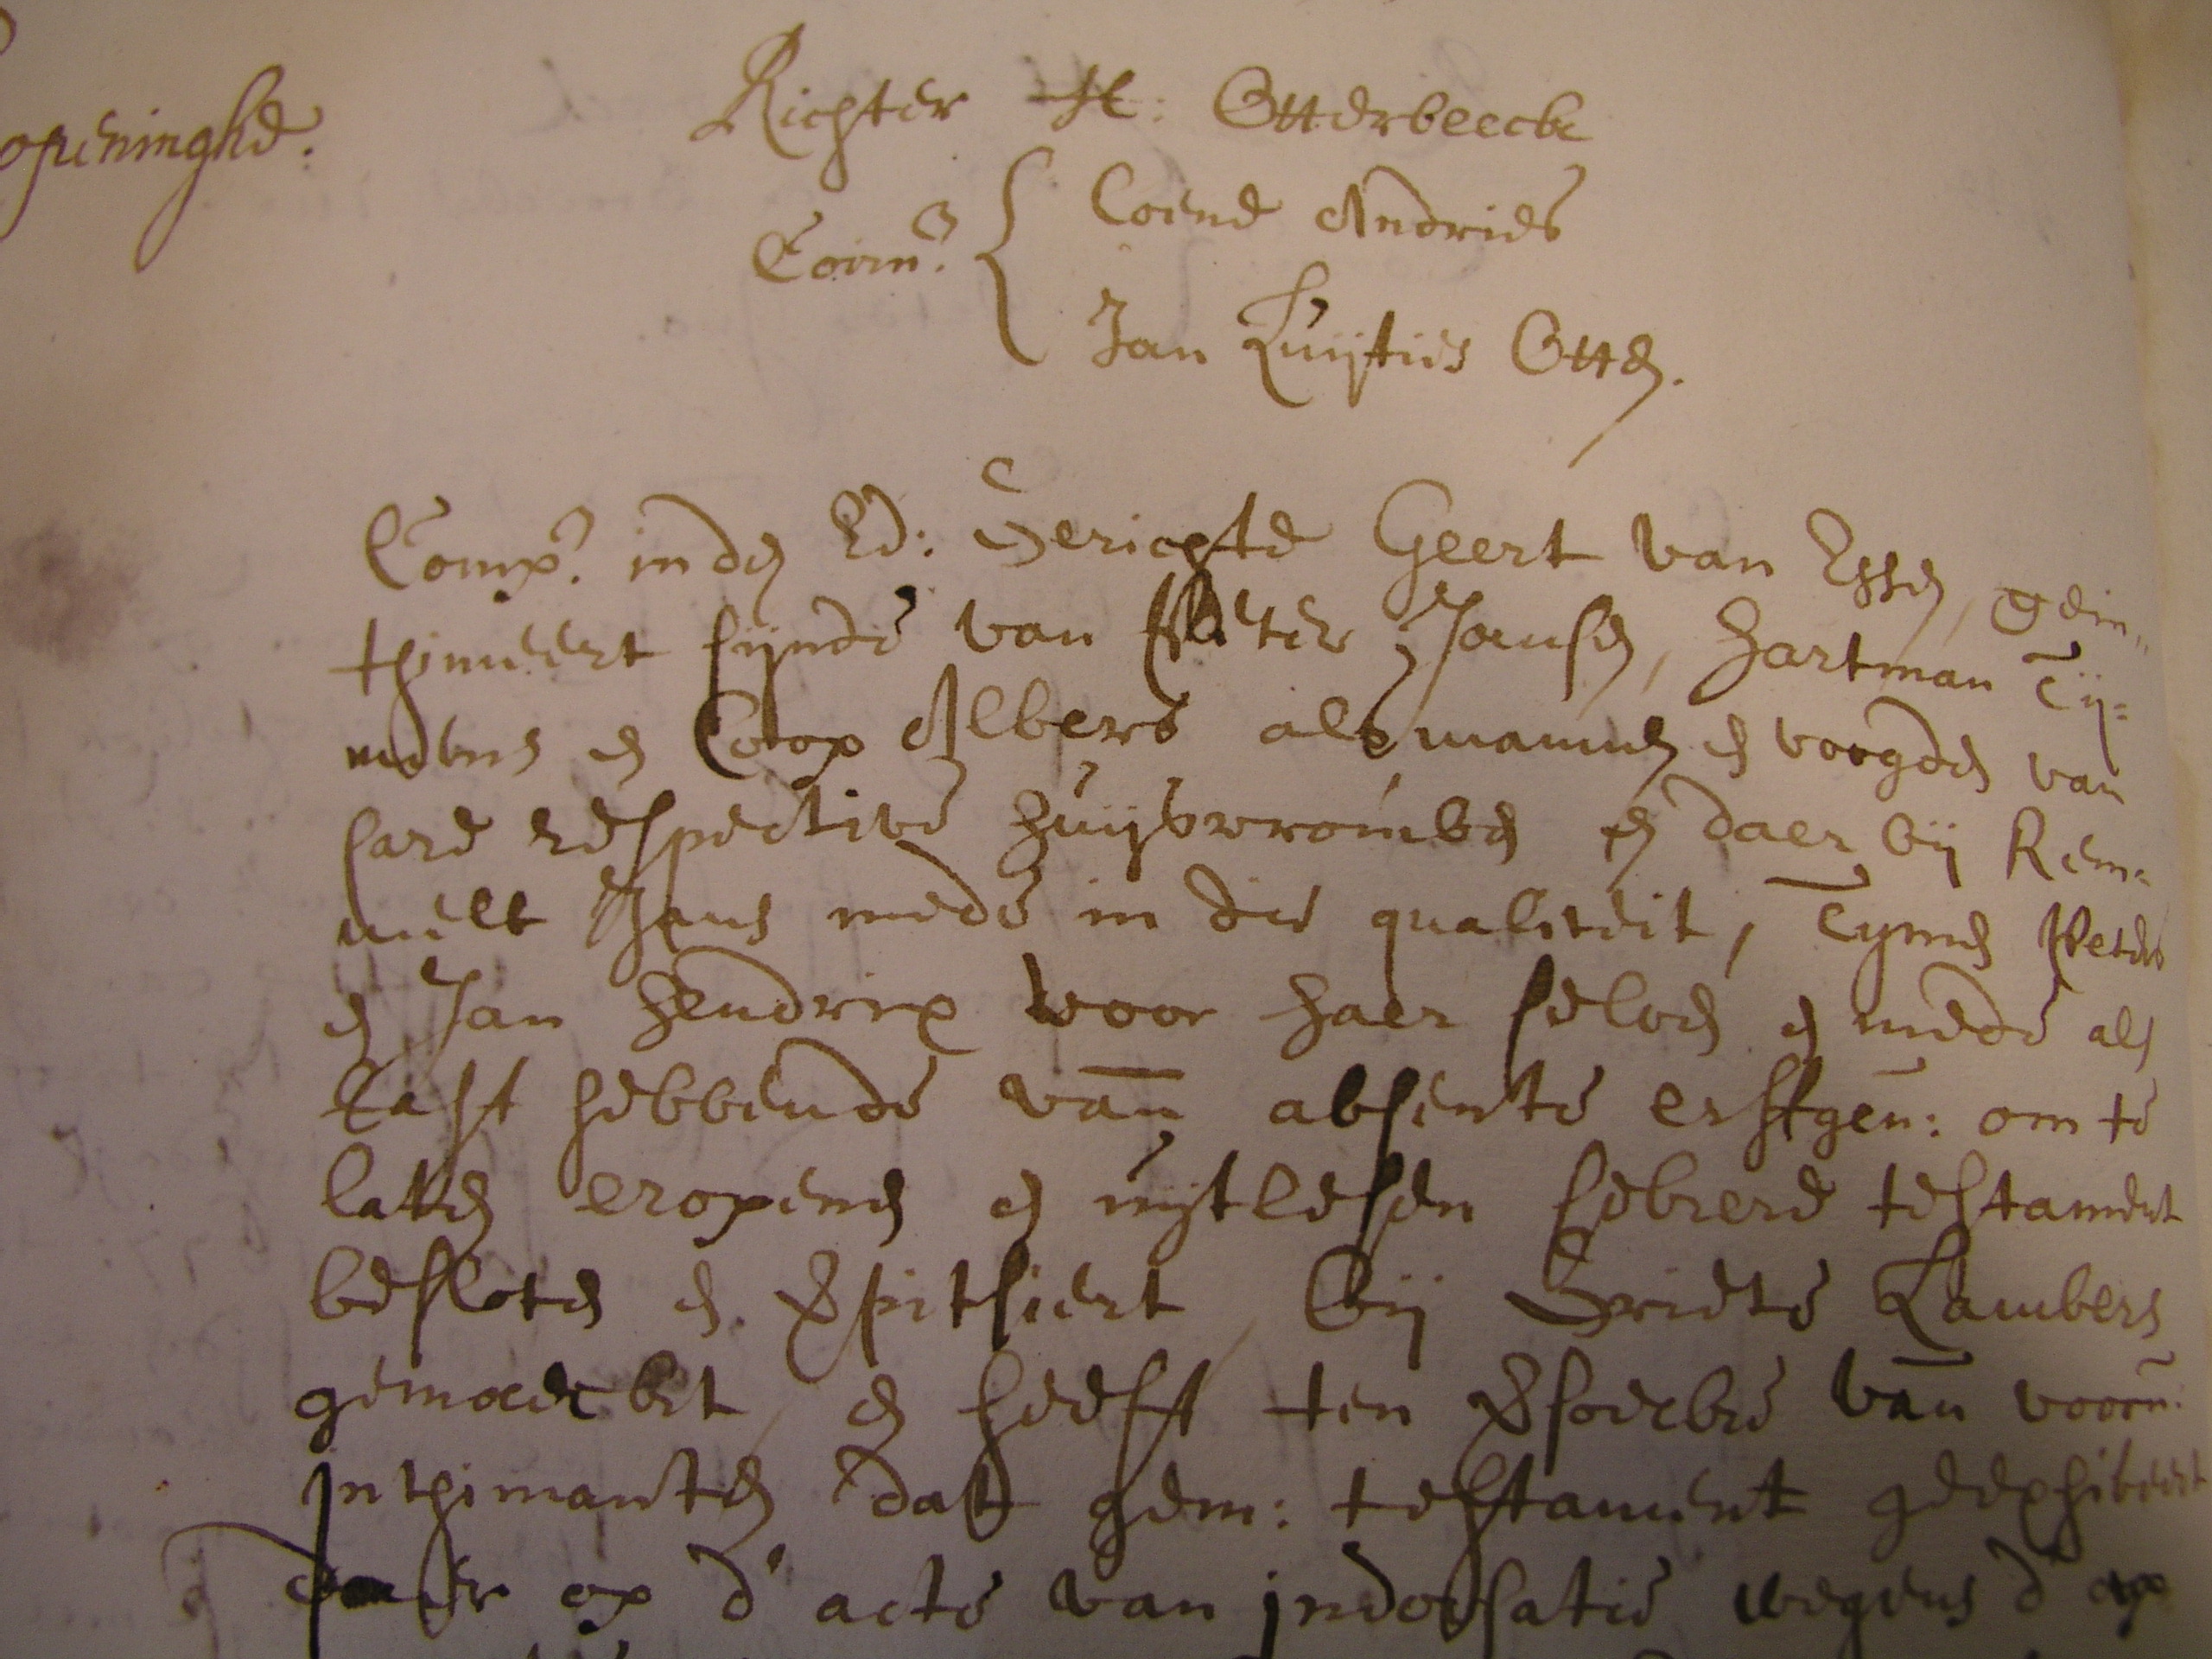 openinghe.
Richter H: Otterbeeck
Corn?. Coene Andries
Jan Luijties Otten.
Comp?. in den Ed: Gerichte Geert van Essen, gein„
thimeert sijnde van Peter Jansen, Hartman Tij=
mens en Coop Albers als mannen en voogden van
hare respective huijsvrouwen en daer bij Rem=
melt Jans mede in die qualiteit, Tymen Peters
en Jan Hendrix voor haer selven en mede als
last hebbende van absente erffgen: om te
laten eropenen en uijtlesen sekere testament
besloten en verpitsiert bij Griete Lambers
gemaeckt en heeft ten versoecke van voorn:
Inthimanten dat gem: testament geexhibeert
daer op d' acte van indorsatie wegens d' op